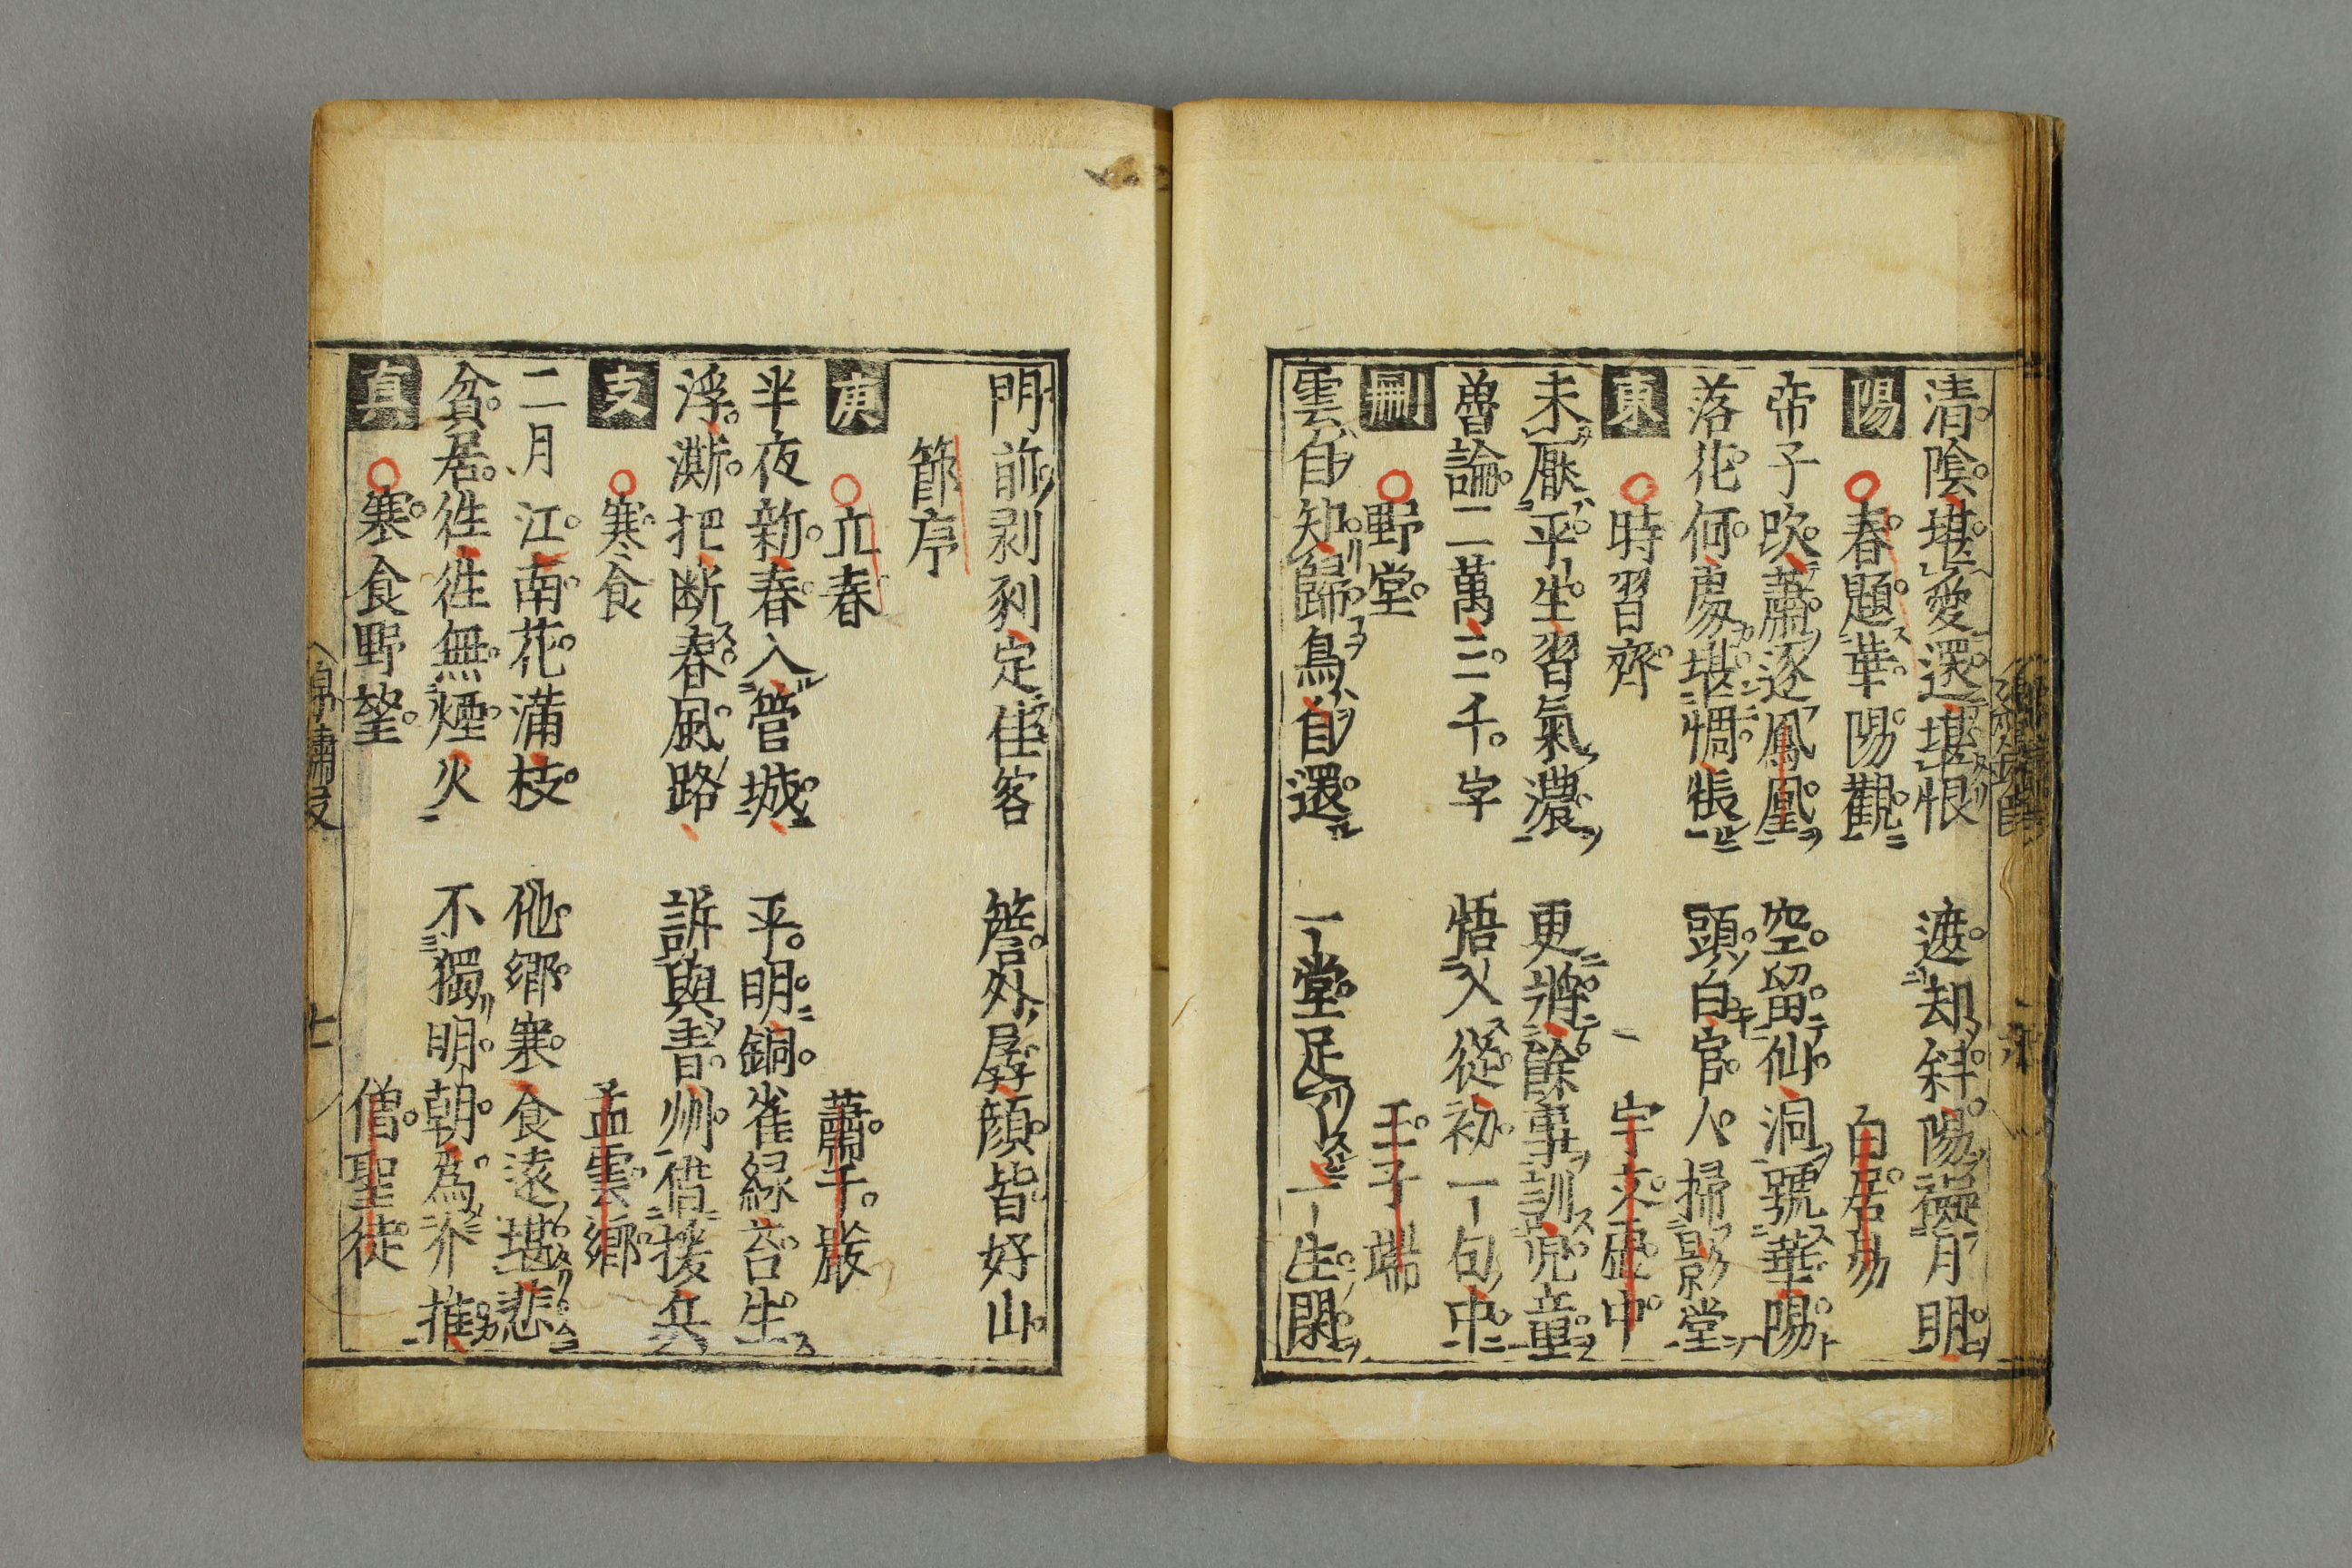 清陰堪愛還堪恨　遮却斜陽礙月明
陽　春題華陽觀　白居易
帝子吹蕭逐鳳凰　空留仙洞號華陽
落花何處堪惆悵　頭白宮人掃影堂
東　時習齊　宇文虚中
未厭平生習氣濃　更將餘事訓児童
曽論二萬三千字　悟入從初一句中
刪　野堂　王子端
雲自知歸鳥自還　一堂足了一生閑
門前剥剥定佳客　簷外孱顔皆好山
節序
庚　立春　蕭千巌
半夜新春入管城　平明銅雀緑苔生
浮澌把断春風路　訴與青州借援兵
支　寒食　孟雲郷
二月江南花満枝　他郷寒食遠堪悲
貧居徃徃無煙火　不獨明朝為介推
真　寒食野望　僧聖徒